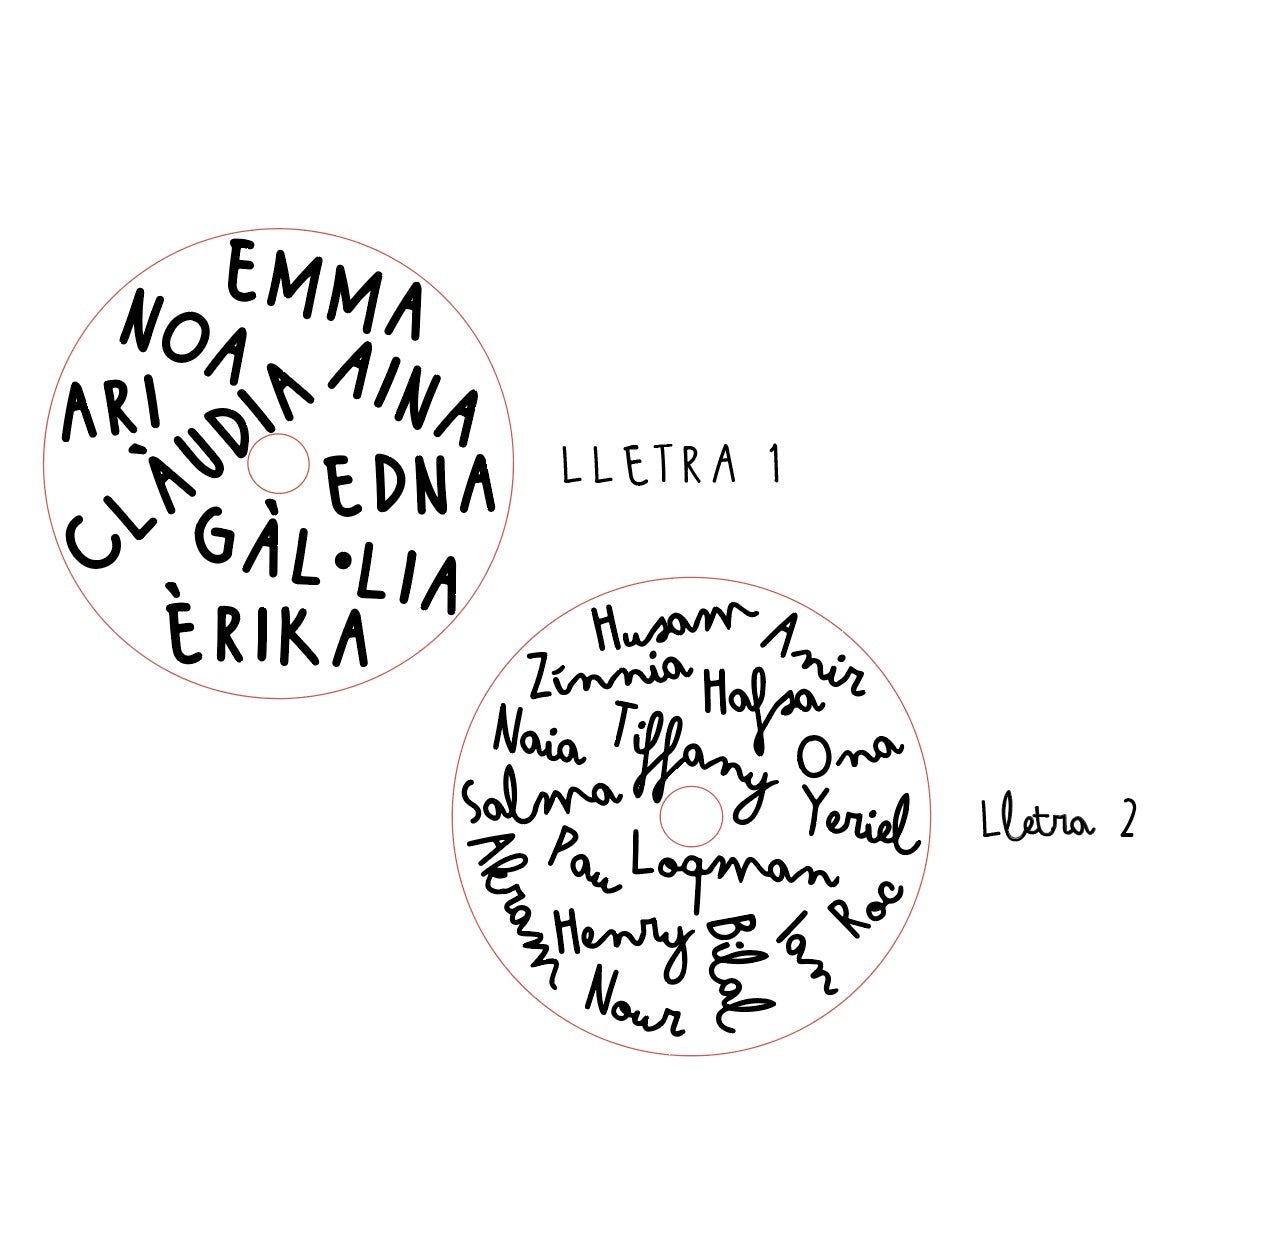 EMMA
NOA
AINA
ARI
CLÀUDIA
EDNA
GÀL·LIA
ÈRIKA
LLETRA 1
Husam
Amir
Zínnia
Hafsa
Naia
Tiffany
Ona
Salma
Yeriel
Akram
Pau
Loqman
Roc
Henry
Bilal
Ian
Nour
Lletra 2